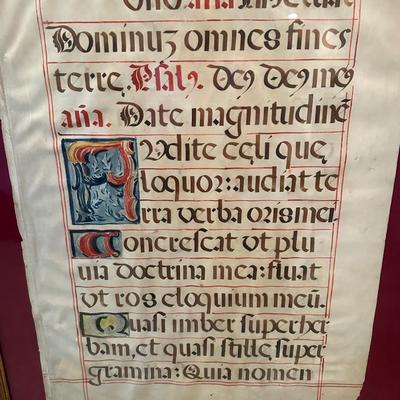 aña
Dominuz omnes fines
terre. Psalꝰ. Deꝰ Deꝰ meꝰ
aña. Date magnitudinē
Audite cęli quę
loquor: audiat te
rra verba oris mei.
Concrescat vt plu
uia doctrina mea: fluat
vt ros eloquium meū.
Quasi imber super her
bam, et quasi stille, super
gramina: Quia nomen